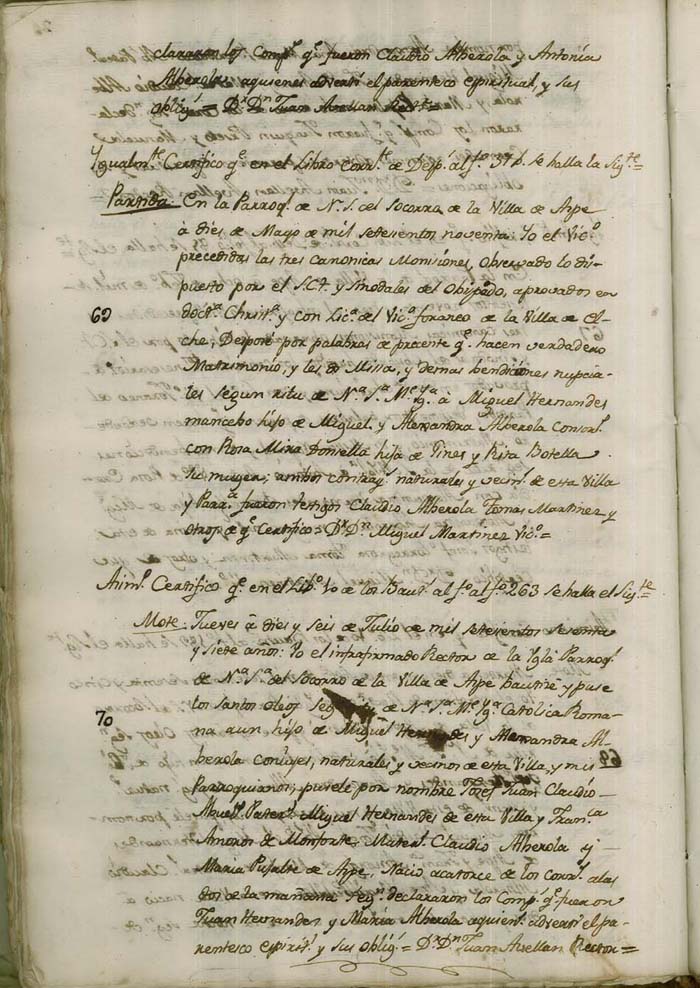 clararon los Comp.s q.e fueron Claudio Alberola y Antonia
Alberola, aquienes adverti el parentesco espiritual, y sus
oblig.s = D.r D.n Juan Arellan Rector =
Ygualm.te Certifico q.e en el Libro Corr.te de Desp.s al f.o 37 b. se halla la Sig.te =
Partida: En la Parroq.l de N.a S.a del Socorro de la Villa de Aspe
à dies de Mayo de mil setesientos noventa. Yo el Vic.o
precedidas las tres canonicas Monisiones, observado lo dis-
puesto por el S.C.T. y Sinodales del Obispado, aprovados en
69
doct.a Christ.a y con Lic.a del Vic.o foraneo de la Villa de El-
che, Desposè por palabras de presente q.e hacen verdadero
Matrimonio, y les di Missa, y demas bendiciones nupcia-
les segun ritu de N.a S.a M.e Yg.a à Miguel Hernandes
mancebo hijo de Miguel, y Alexandra Alberola Consort.s
con Rosa Mira donsella hija de Gines y Rita Botella
su muger; ambos contray.s naturales y vecin.s de esta Villa
y Parr.a fueron testigos Claudio Alberola Tomas Martinez y
otros de q.e Certifico = D.r D.n Miguel Martinez Vic.o =
Asim.o Certifico q.e en el Lib.o 10 de los Baut.s al f.o al f.o 263 se halla el Sig.te =
Mote: Jueves à dies y seis de Julio de mil setesientos sesenta
y siete años: Yo el infrafirmado Rector de la Ygl.a Parroq.l
de N.a S.a del Socorro de la Villa de Aspe Bautisè y puse
los santos oleos Seg.n de N.a S.a M.e Yg.a Catolica Roma-
70
na a un hijo de Miguel Hernandes y Alexandra Al-
berola conjujes, naturales y vecinos de esta Villa, y mis
Parroquianos; pusele por nombre Josef Juan Claudio
Abuel.s Pater.s Miguel Hernandes de esta Villa y Fran.ca
Amoros de Monforte, Mater.s Claudio Alberola y
Maria Pujalte de Aspe, Nacio a catorce de los corr.s a las
dos de la mañana seg.n declararon los Comp.s q.e fueron
Juan Hernandes y Maria Alberola aquien.s adverti el pa-
rentesco espirit.l y sus oblig.s = D.r D.n Juan Arellan Rector =